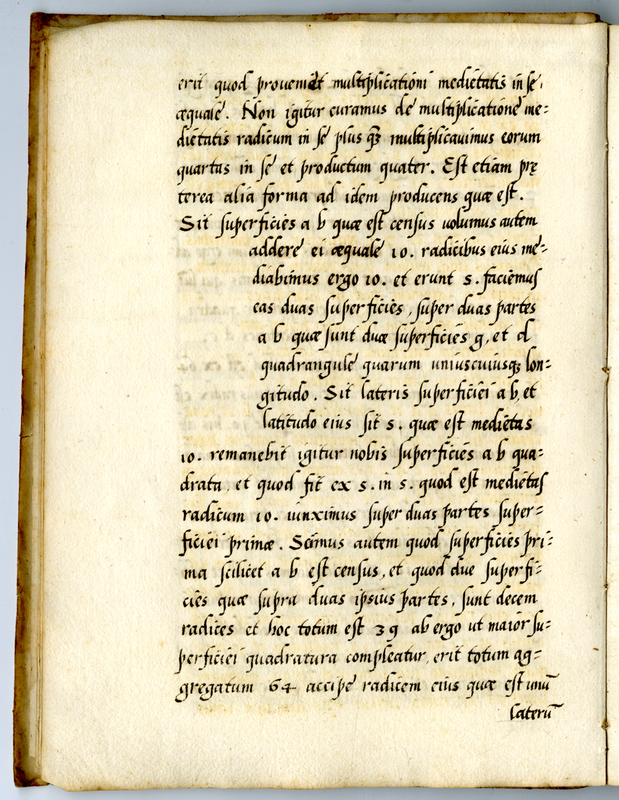 erit quod proveniet multiplicationi medietatis in se
æquale. Non igitur curamus de multiplicatione me=
dietatis radicum in se plus qз multiplicavimus eorum
quartas in se et productum quater. Est etiam prę
terea alia forma ad idem producens quæ est.
Sit superficies a b quæ est census volumus autem
addere ei æquale 10. radicibus eius me=
diabimus ergo 10. et erunt 5. faciemus
eas duas superficies, super duas partes
a b quæ sunt duæ superficies g, et d
quadrangulę quarum uniuscuiusqз lon=
gitudo. Sit lateris superficiei a b, et
latitudo eius sit 5. quæ est medietas
10. remanebit igitur nobis superficies a b qua=
drata, et quod fit ex 5. in 5. quod est medietas
radicum 10. iunximus super duas partes super=
ficiei primæ. Scimus autem quod superficies pri=
ma scilicet a b est census, et quod due superfi=
cies quæ supra duas ipsius partes, sunt decem
radices et hoc totum est 39 ab ergo ut maior su=
perficiei quadratura compleatur, erit totum ag=
gregatum 64 accipe radicem eius quæ est unū
laterū